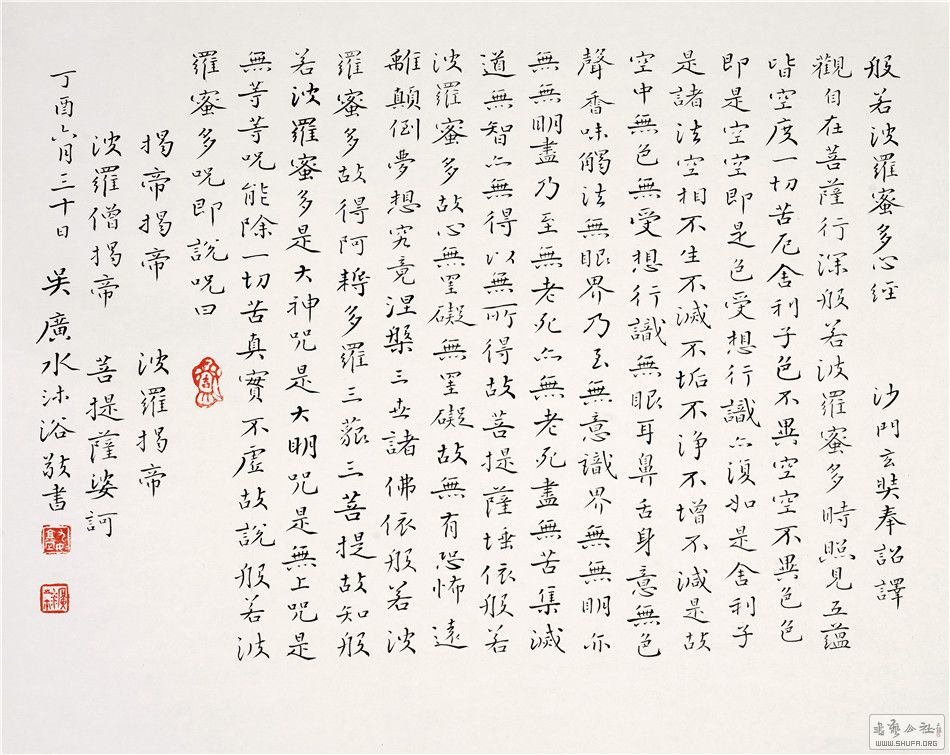 般若波羅蜜多心經 沙門玄奘奉詔譯
觀自在菩薩行深般若波羅蜜多時照見五蘊
皆空度一切苦厄舍利子色不異空空不異色色
即是空空即是色受想行識亦復如是舍利子
是諸法空相不生不滅不垢不淨不增不減是故
空中無色無受想行識無眼耳鼻舌身意無色
聲香味觸法無眼界乃至無意識界無無明亦
無無明盡乃至無老死亦無老死盡無苦集滅
道無智亦無得以無所得故菩提薩埵依般若
波羅蜜多故心無罣礙無罣礙故無有恐怖遠
離顛倒夢想究竟涅槃三世諸佛依般若波
羅蜜多故得阿耨多羅三藐三菩提故知般
若波羅蜜多是大神咒是大明咒是無上咒是
無等等咒能除一切苦真實不虛故說般若波
羅蜜多咒即說咒曰
揭帝揭帝 波羅揭帝
波羅僧揭帝 菩提薩婆訶
丁酉六月三十日 吳廣水沐浴敬書
WWW.SHUFA.ORG